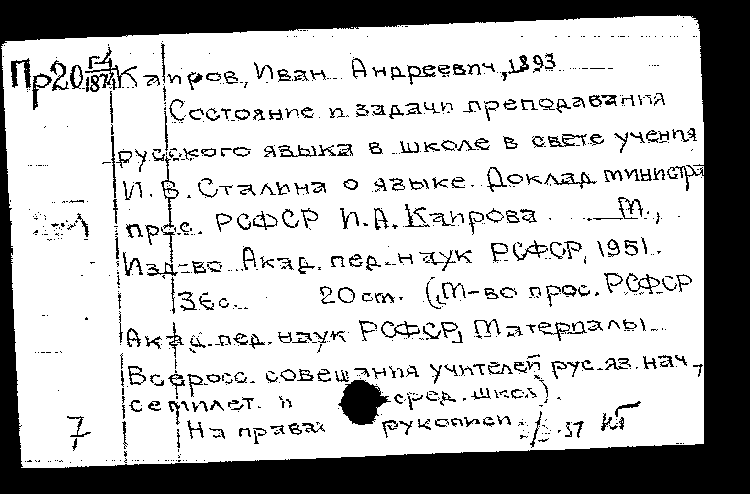 Пр20 Г-4/1874 Каиров, Иван Андреевич, 1893
Состояние и задачи преподавания
русского языка в школе в свете учения
И. В. Сталина о языке. Доклад министра
прос. РСФСР И.А. Каирова. М.,
Изд-во Акад. пед. наук РСФСР, 1951.
36с. 20 ст. (М-во прос. РСФСР
Акад. пед. наук РСФСР, Материалы
Всеросс. совещания учителей рус. яз. нач.,
семилет. и сред. школ).
На правах рукописи. 51 КГ
7